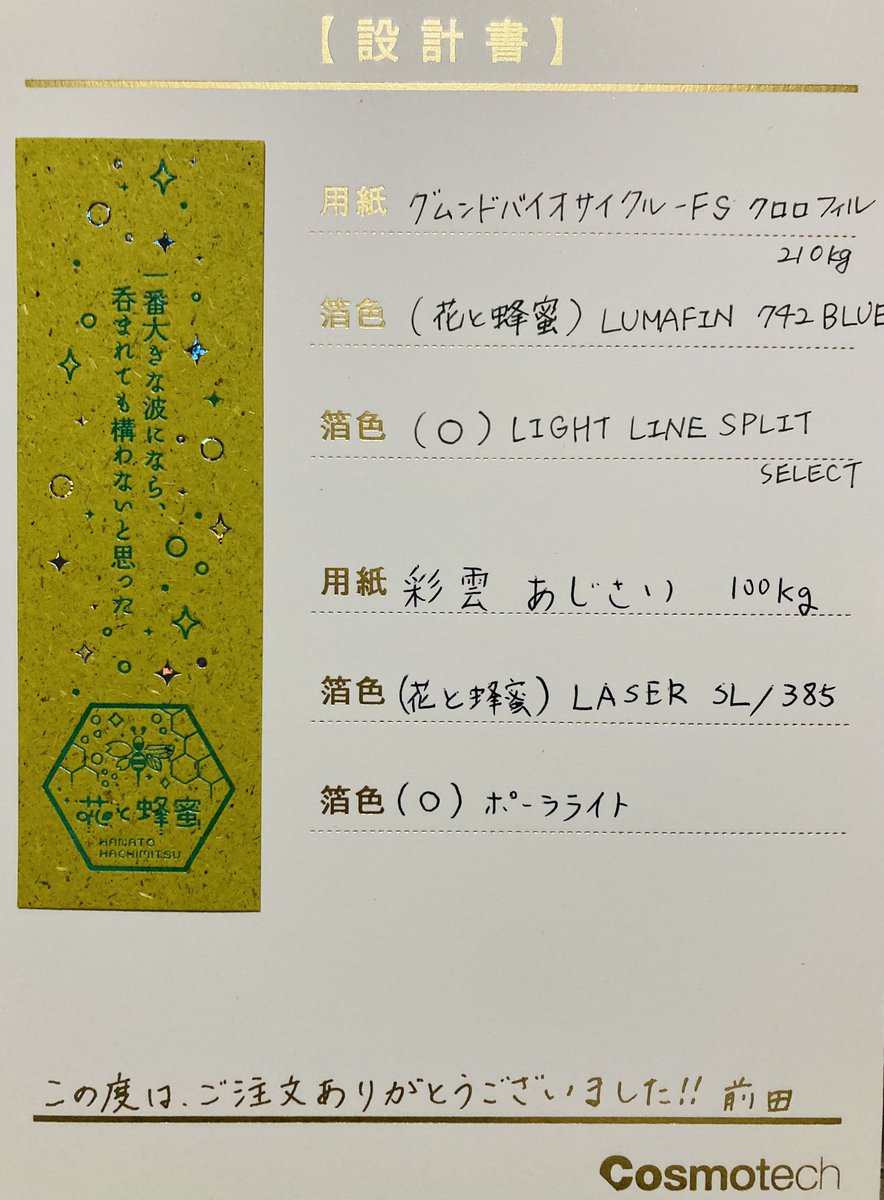 【設計書】
一番大きな波になら、
呑まれても構わないと思った
花と蜂蜜
HANATO
HACHIMITSU
用紙 グムンドバイオサイクル-FS クロロフィル
210kg
箔色 (花と蜂蜜) LUMAFIN 742 BLUE
箔色 (○) LIGHT LINE SPLIT
SELECT
用紙 彩雲 あじさい 100kg
箔色 (花と蜂蜜) LASER SL/385
箔色 (○) ポーラライト
この度は、ご注文ありがとうございました!! 前田
Cosmotech